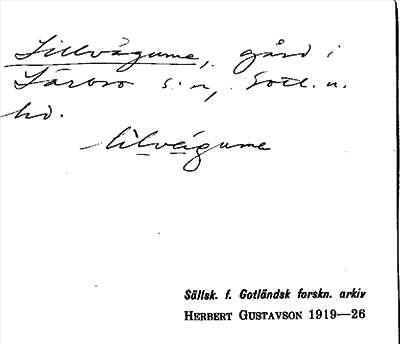 Lillvägume, gård i
Lärbro s:n, Gotl. n.
hd.
lilvägume
Sällsk. f. Gotländsk forskn. arkiv
HERBERT GUSTAVSON 1919—26